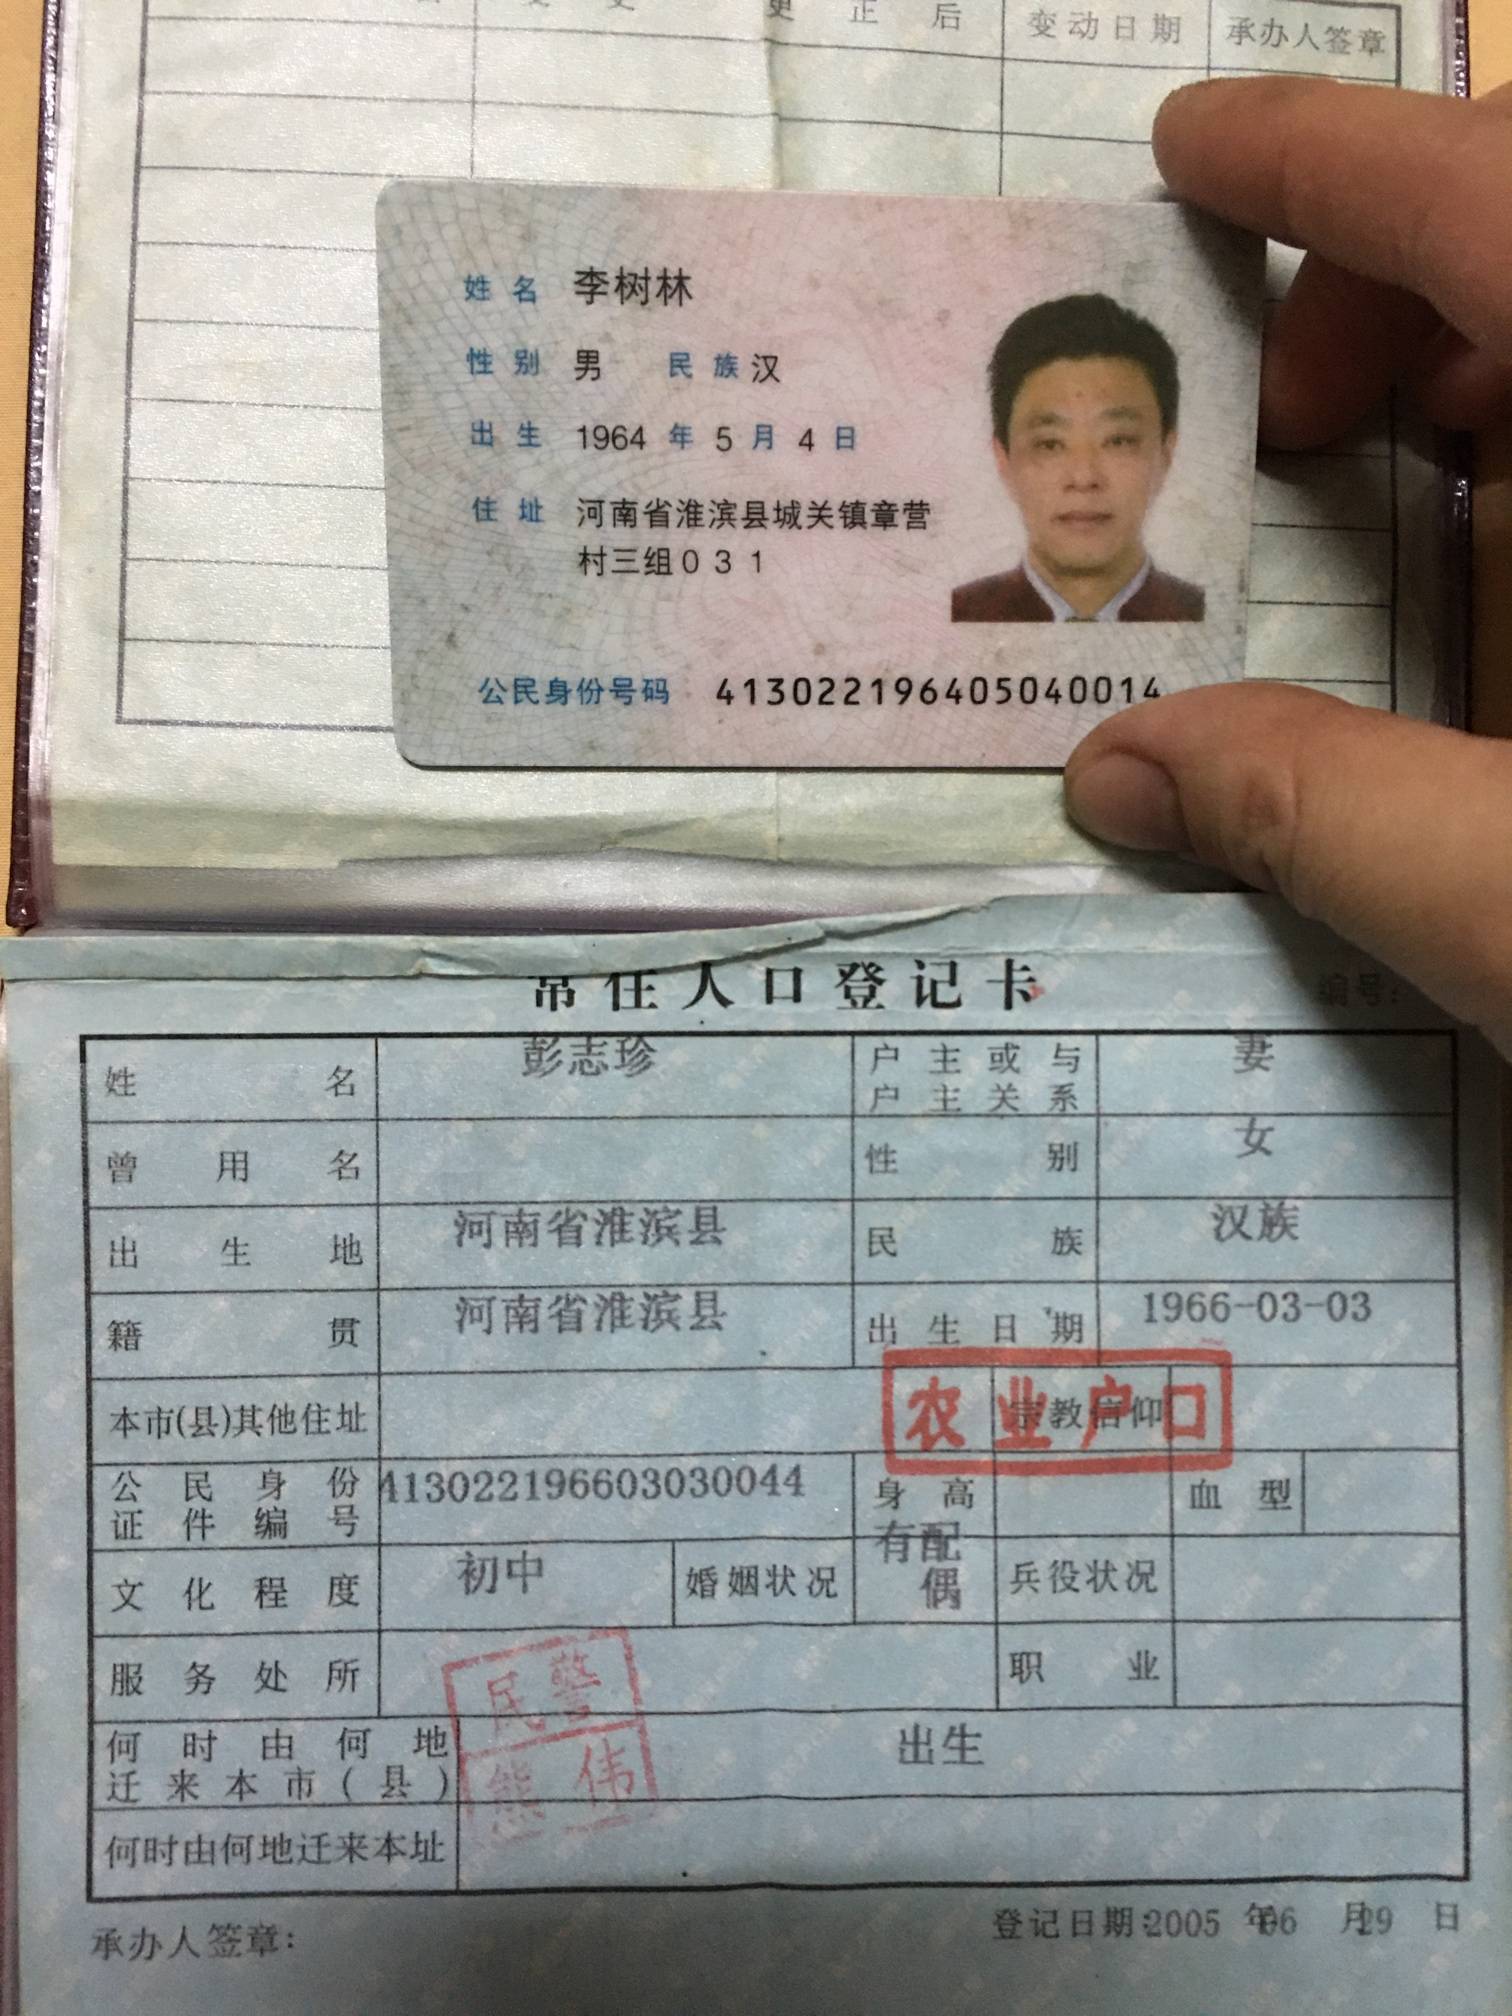 更 正 后 变动日期 承办人签章
姓 名 李树林
性 别 男 民 族 汉
出 生 1964 年 5 月 4 日
住 址 河南省淮滨县城关镇章营
村三组031
公民身份号码 413022196405040014
常住人口登记卡
编号:
姓 名 彭志珍 户主或与户主关系 妻
曾 用 名 性 别 女
出 生 地 河南省淮滨县 民 族 汉族
籍 贯 河南省淮滨县 出生日期 1966-03-03
本市(县)其他住址 宗教信仰
农业户口
公民身份证件编号 413022196603030044 身 高 血 型
文化程度 初中 婚姻状况 有配偶 兵役状况
服务处所 职 业
民警
熊伟
何时由何地迁来本市(县) 出生
何时由何地迁来本址
承办人签章: 登记日期:2005 年06 月29 日